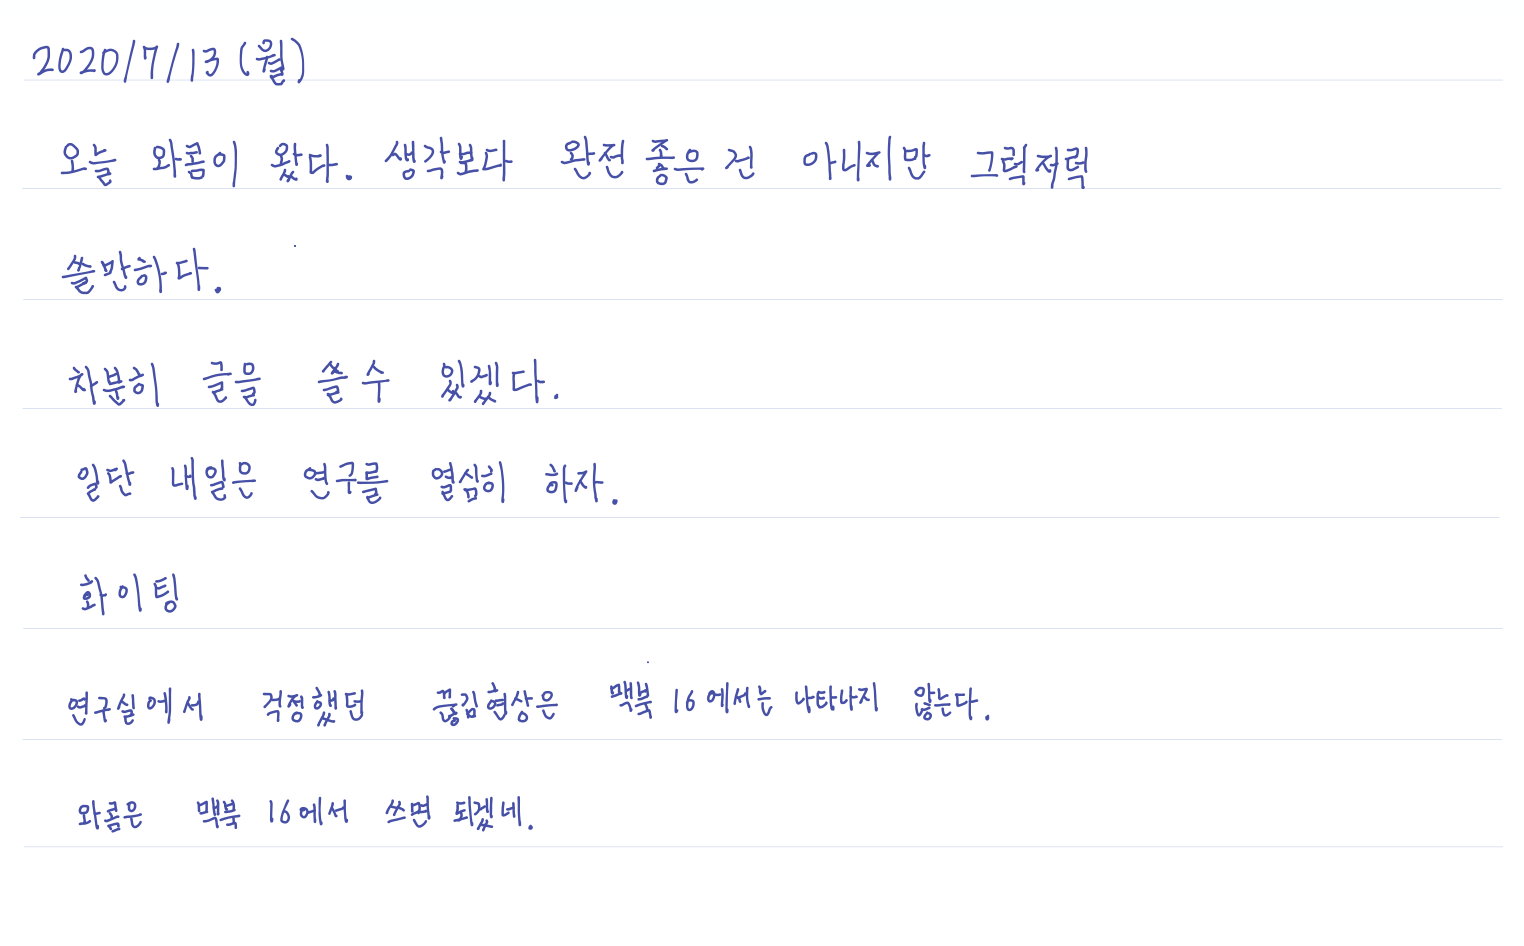 2020/7/13 (월)
오늘 와콤이 왔다. 생각보다 완전 좋은 건 아니지만 그럭저럭
쓸만하다.
차분히 글을 쓸 수 있겠다.
일단 내일은 연구를 열심히 하자.
화이팅
연구실에서 걱정했던 끊김현상은 맥북 16에서는 나타나지 않는다.
와콤은 맥북 16에서 쓰면 되겠네.